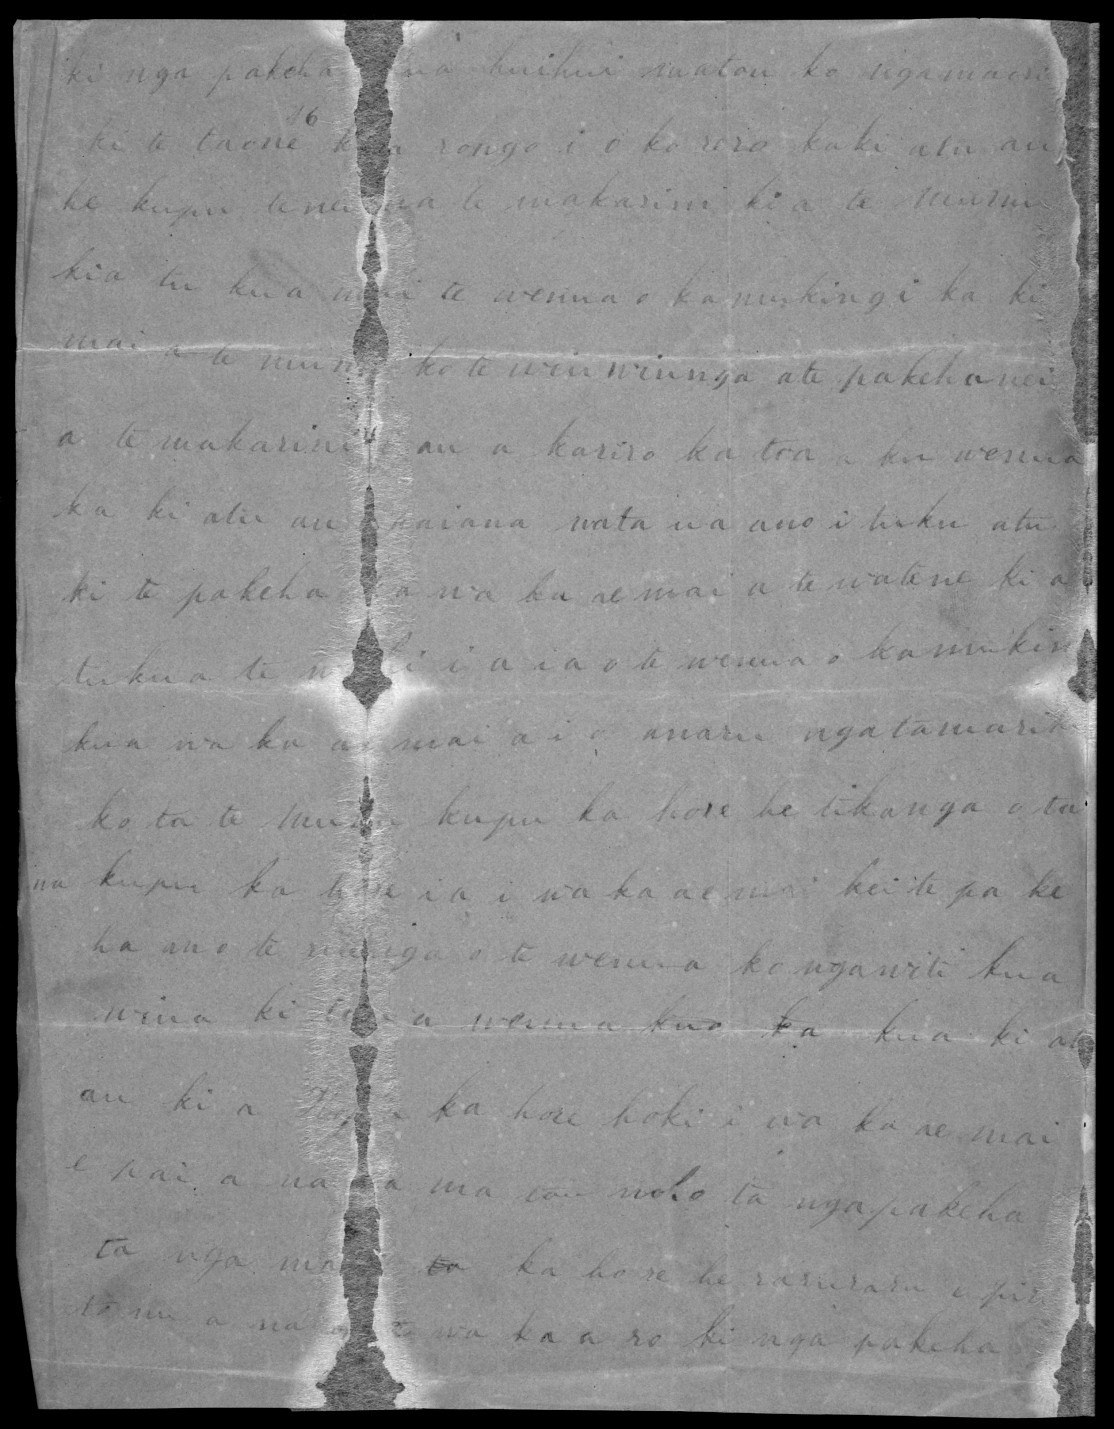 ki nga pakeha na huihui matou ko ngamaori
16
ki te taone kua rongo i o korero kaki atu au
he kupu tenei na te makarini ki a te mumu
kia tu kua mai te wenua o kamukingi ka ki
mai a te mumu ko te wiuwiunga ate pakeha nei
a te makarini au a kariro ka toa a ku wenua
ka ki atu au naiana wata na ano i tuku atu
ki te pakeha a wa ka ae mai a te watene ki a
tukua te i a ia o te wenua o kamukin
kua wa ka ae mai a i o anaru ngatamariki
ko ta te mumu kupu ka hore he tikanga o ta
na kupu ka hore ia i wakaae mai kei te pa ke
ha ano te o te wenua ko ngawiti kua
wiua ki taua wenua kua ka kua ki atu
au ki a ka hore hoki i wa ka ae mai
e pai a na ma tou noho ta ngapakeha
ta nga ma ta ka hore he raruraru e piri
tonu a na te wa ka a ro ki nga pakeha